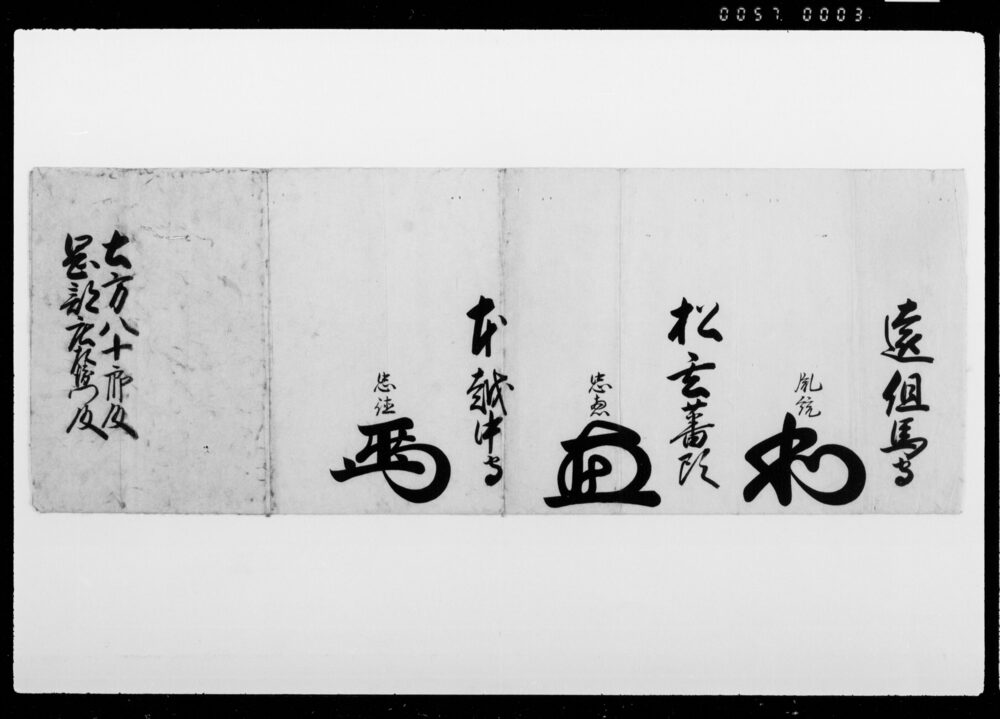 0057 0003
遠但馬守
胤統
松玄蕃頭
忠恵
本越中守
忠徳
大方八十郎殿
岡部庄左衛門殿